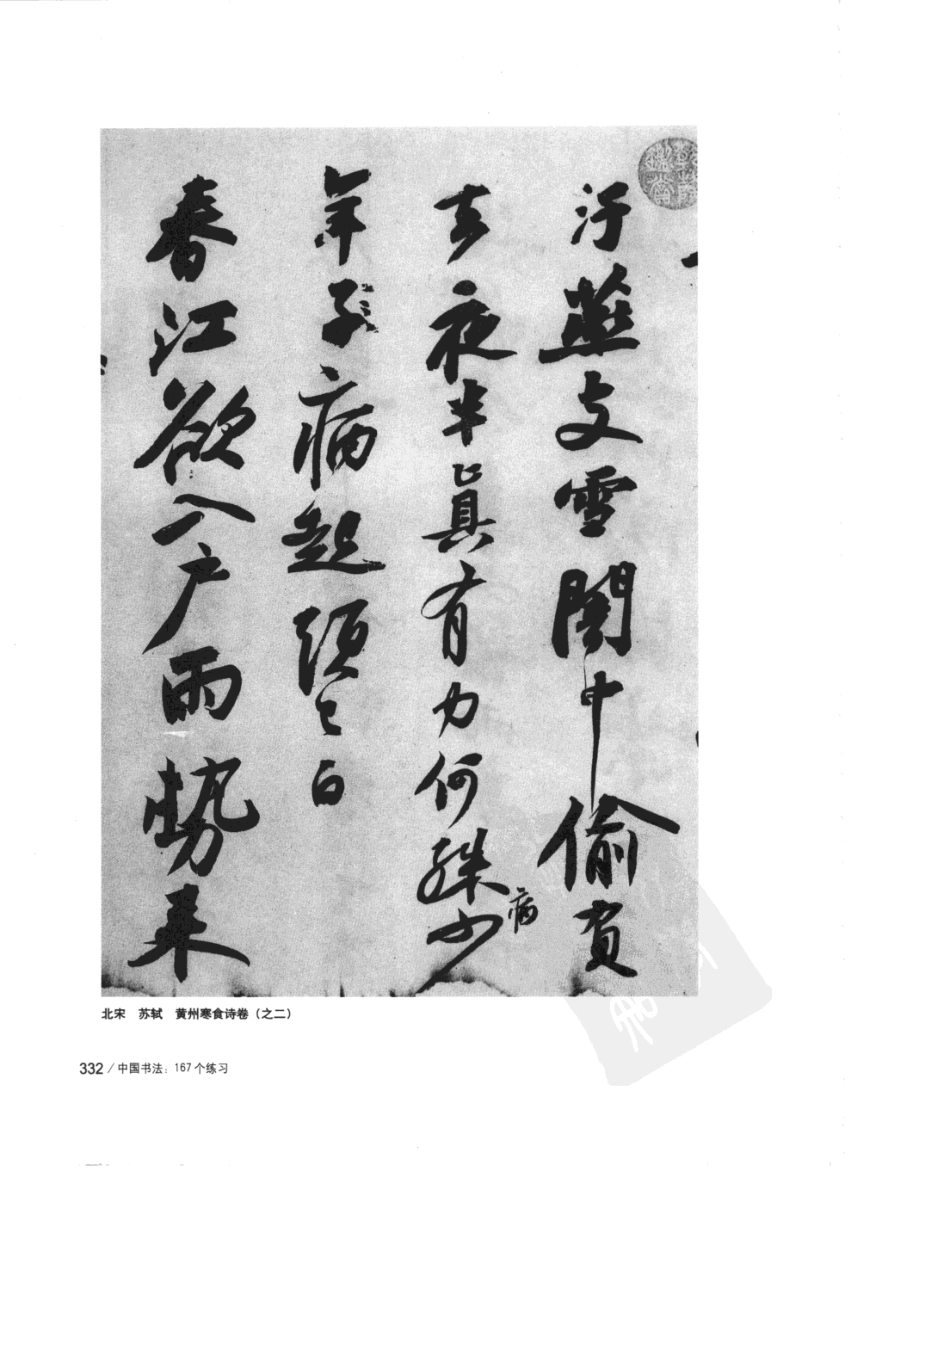 汙燕支雪闇中偷負
去夜半真有力何殊少
病
年子病起須已白
春江欲入户雨勢来
北宋 苏轼 黄州寒食诗卷（之二）
332 / 中国书法：167个练习